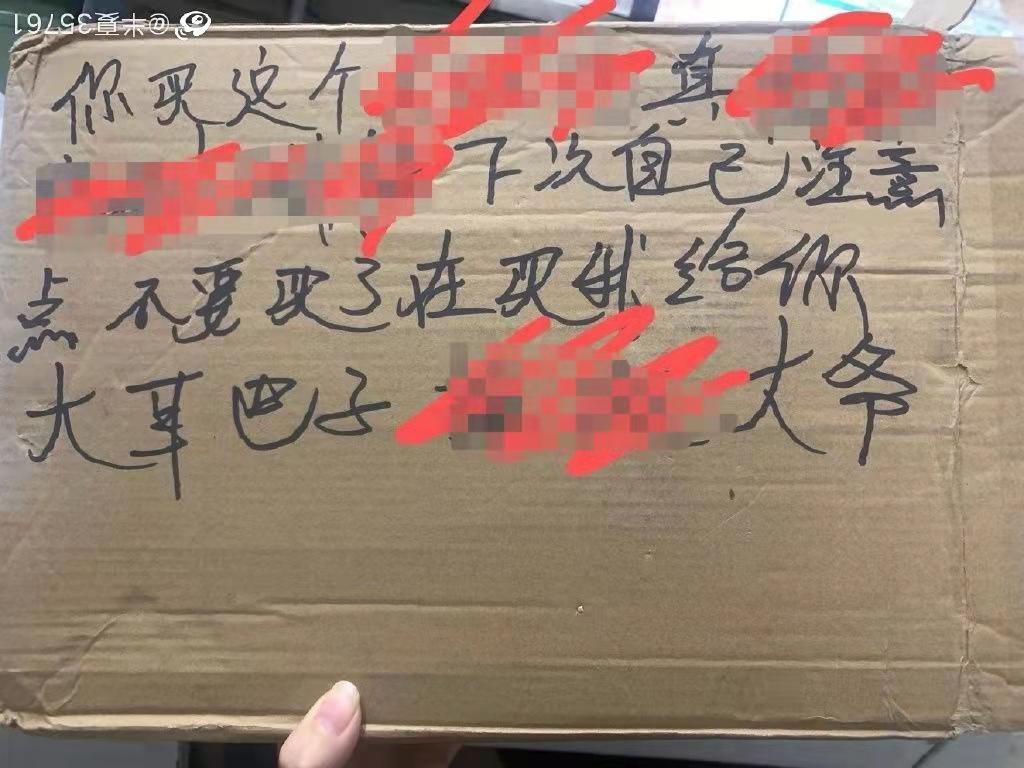 @末夏35761
你买这个 真
下次自己注意
点 不要买了在买我给你
大耳巴子 大爷